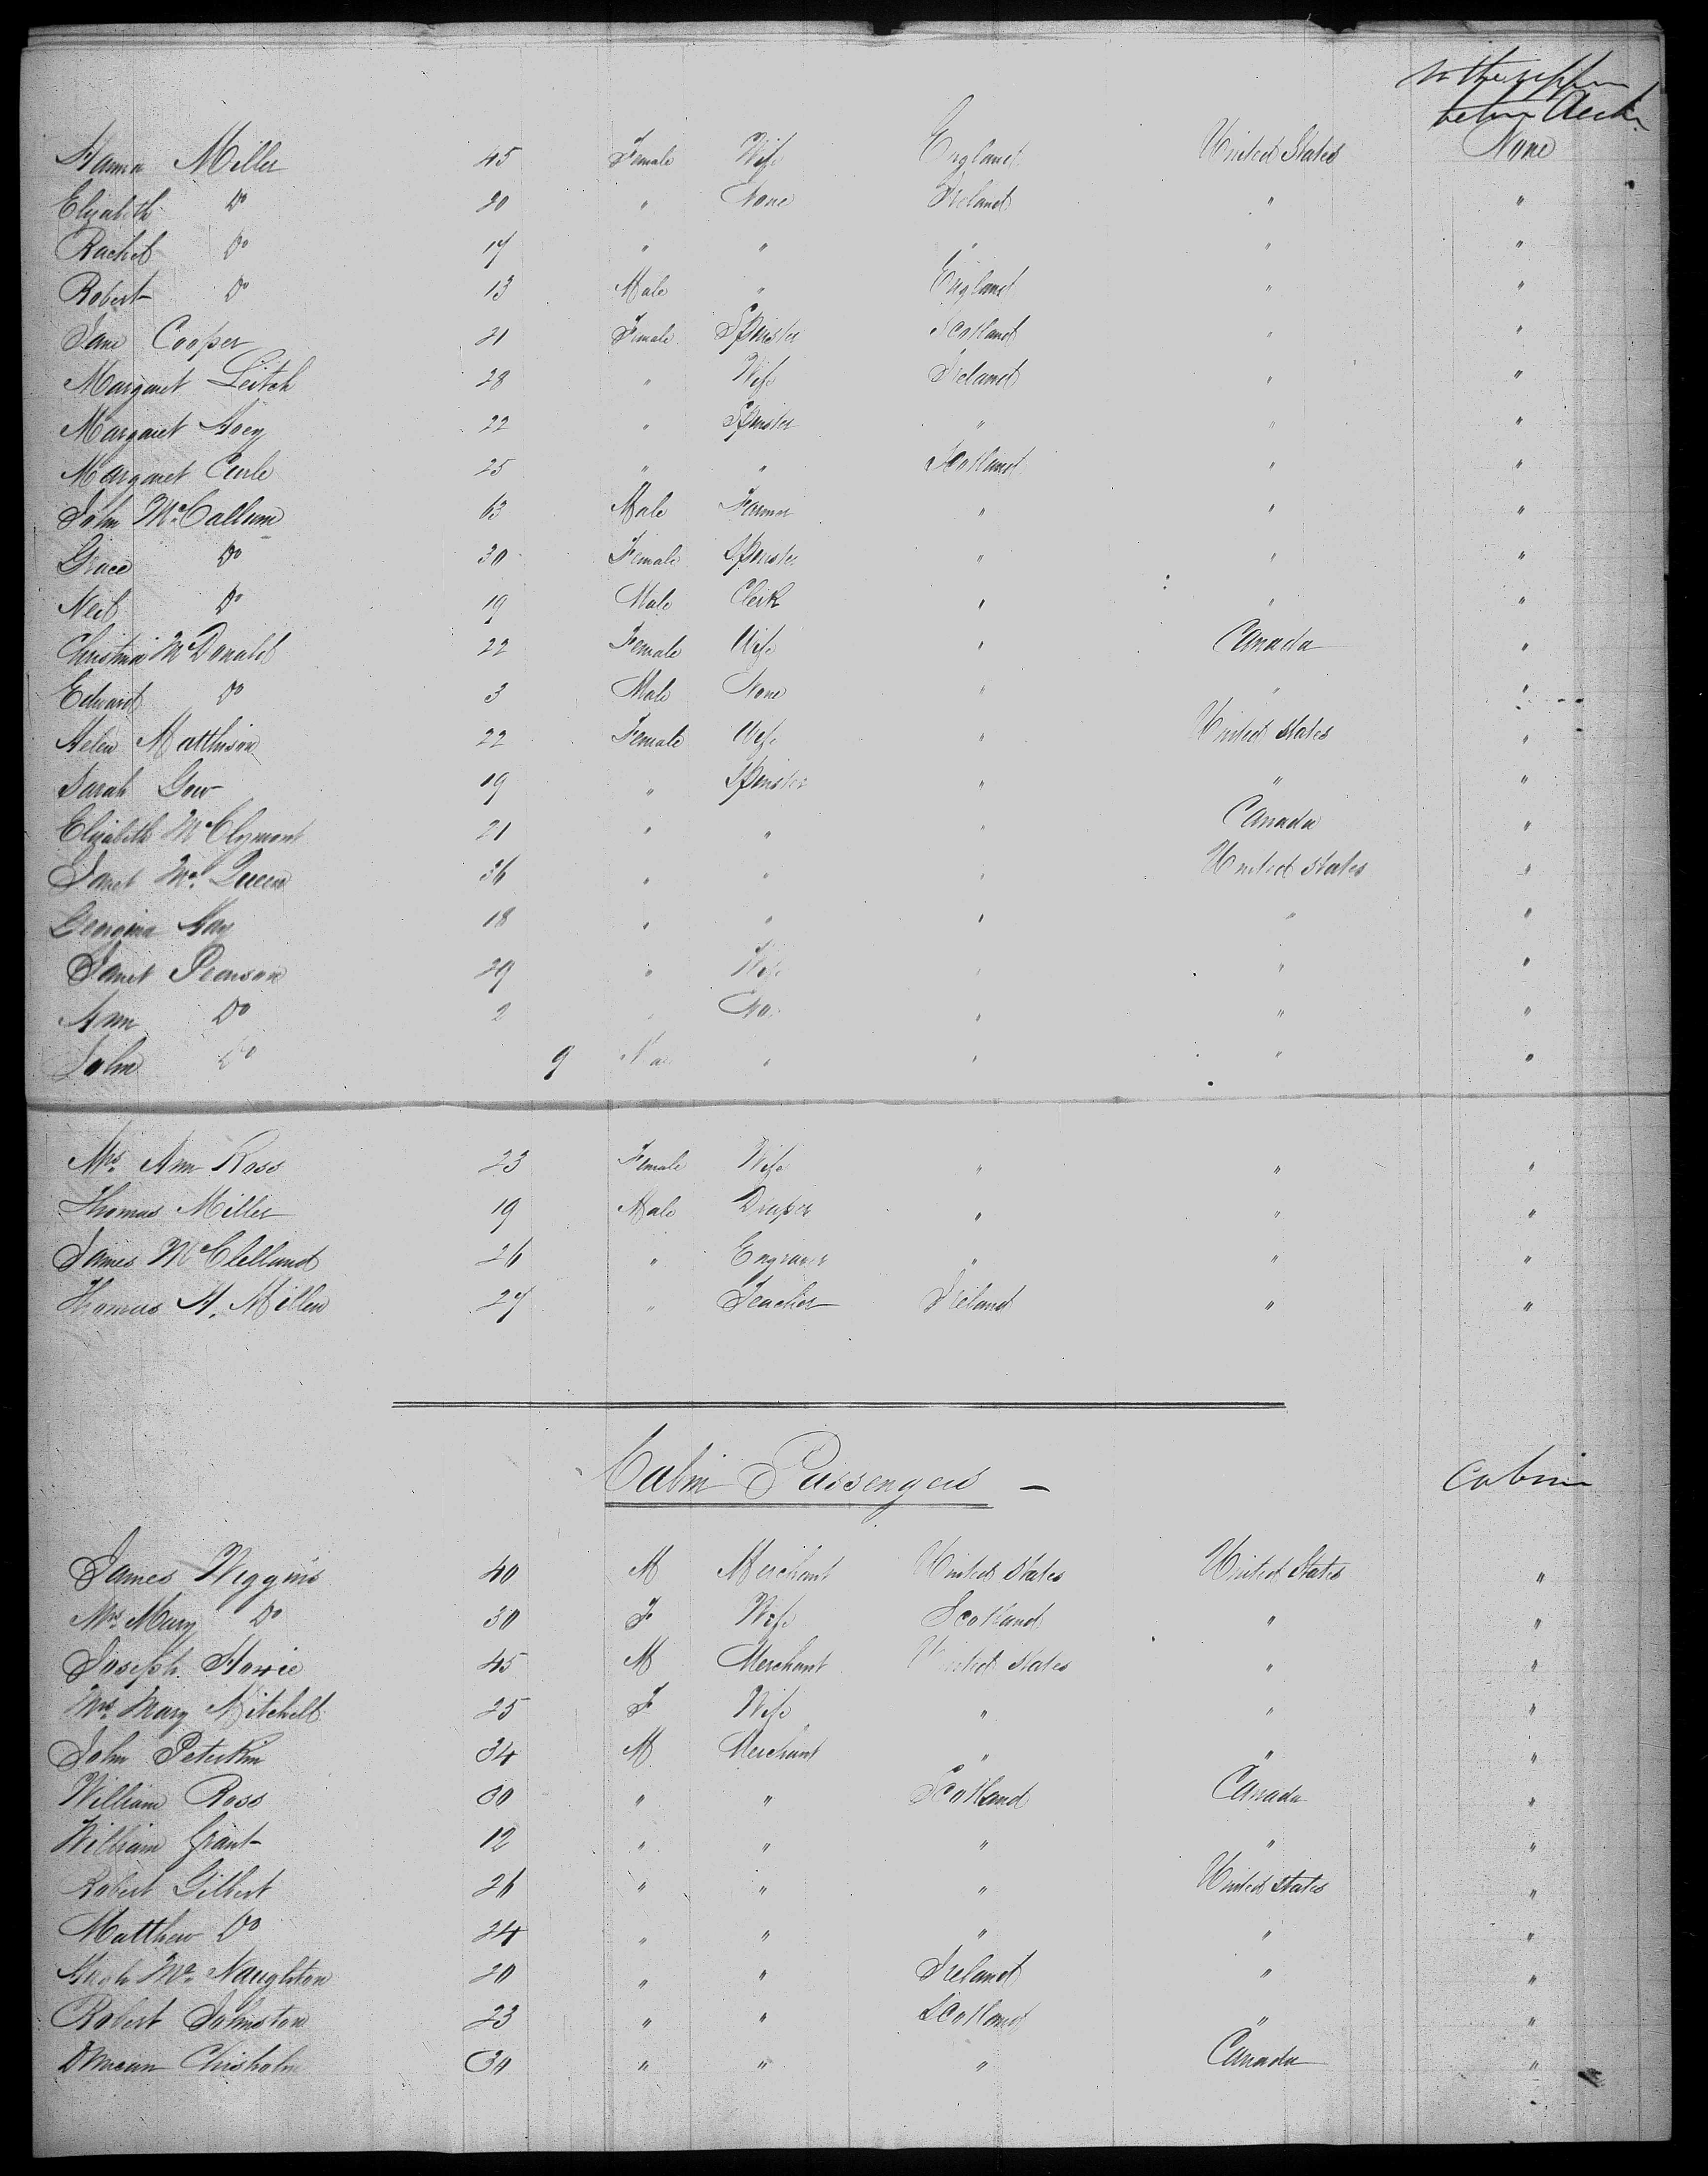 In the upper
between Decks
Hanna Miller 45 Female Wife England United States None
Elizabeth Do 20 " None Ireland " "
Rachel Do 17 " " " " "
Robert Do 13 Male " England " "
Jane Cooper 21 Female Spinster Scotland " "
Margaret Leitch 28 " Wife Ireland " "
Margaret Hoey 22 " Spinster " " "
Margaret Curle 25 " " Scotland " "
John McCallum 63 Male Farmer " " "
Grace Do 30 Female Spinster " " "
Neil Do 19 Male Clerk " " "
Christina McDonald 22 Female Wife " Canada "
Edward Do 3 Male None " " "
Helen Matthison 22 Female Wife " United States "
Sarah Gow 19 " Spinster " " "
Elizabeth McClymont 21 " " " Canada "
Janet McQueen 36 " " " United States "
Georgina Hay 18 " " " " "
Janet Pearson 29 " Wife " " "
Ann Do 2 " No " " "
John Do 9 Ma " " " "
Mrs. Ann Ross 23 Female Wife " " "
Thomas Miller 19 Male Draper " " "
James McClelland 26 " Engraver " " "
Thomas H. Millen 27 " Teacher Ireland " "
Cabin Passengers – Cabin
James Wiggins 40 M Merchant United States United States "
Mrs Mary Do 30 F Wife Scotland " "
Joseph Howie 45 M Merchant United States " "
Mrs. Mary Mitchell 25 F Wife " " "
John Peterkin 34 M Merchant " " "
William Ross 30 " " Scotland Canada "
William Grant 12 " " " " "
Robert Gilbert 26 " " " United States "
Matthew Do 24 " " " " "
Hugh McNaughton 20 " " Ireland " "
Robert Johnston 23 " " Scotland " "
Duncan Chisholm 30 " " " Canada "